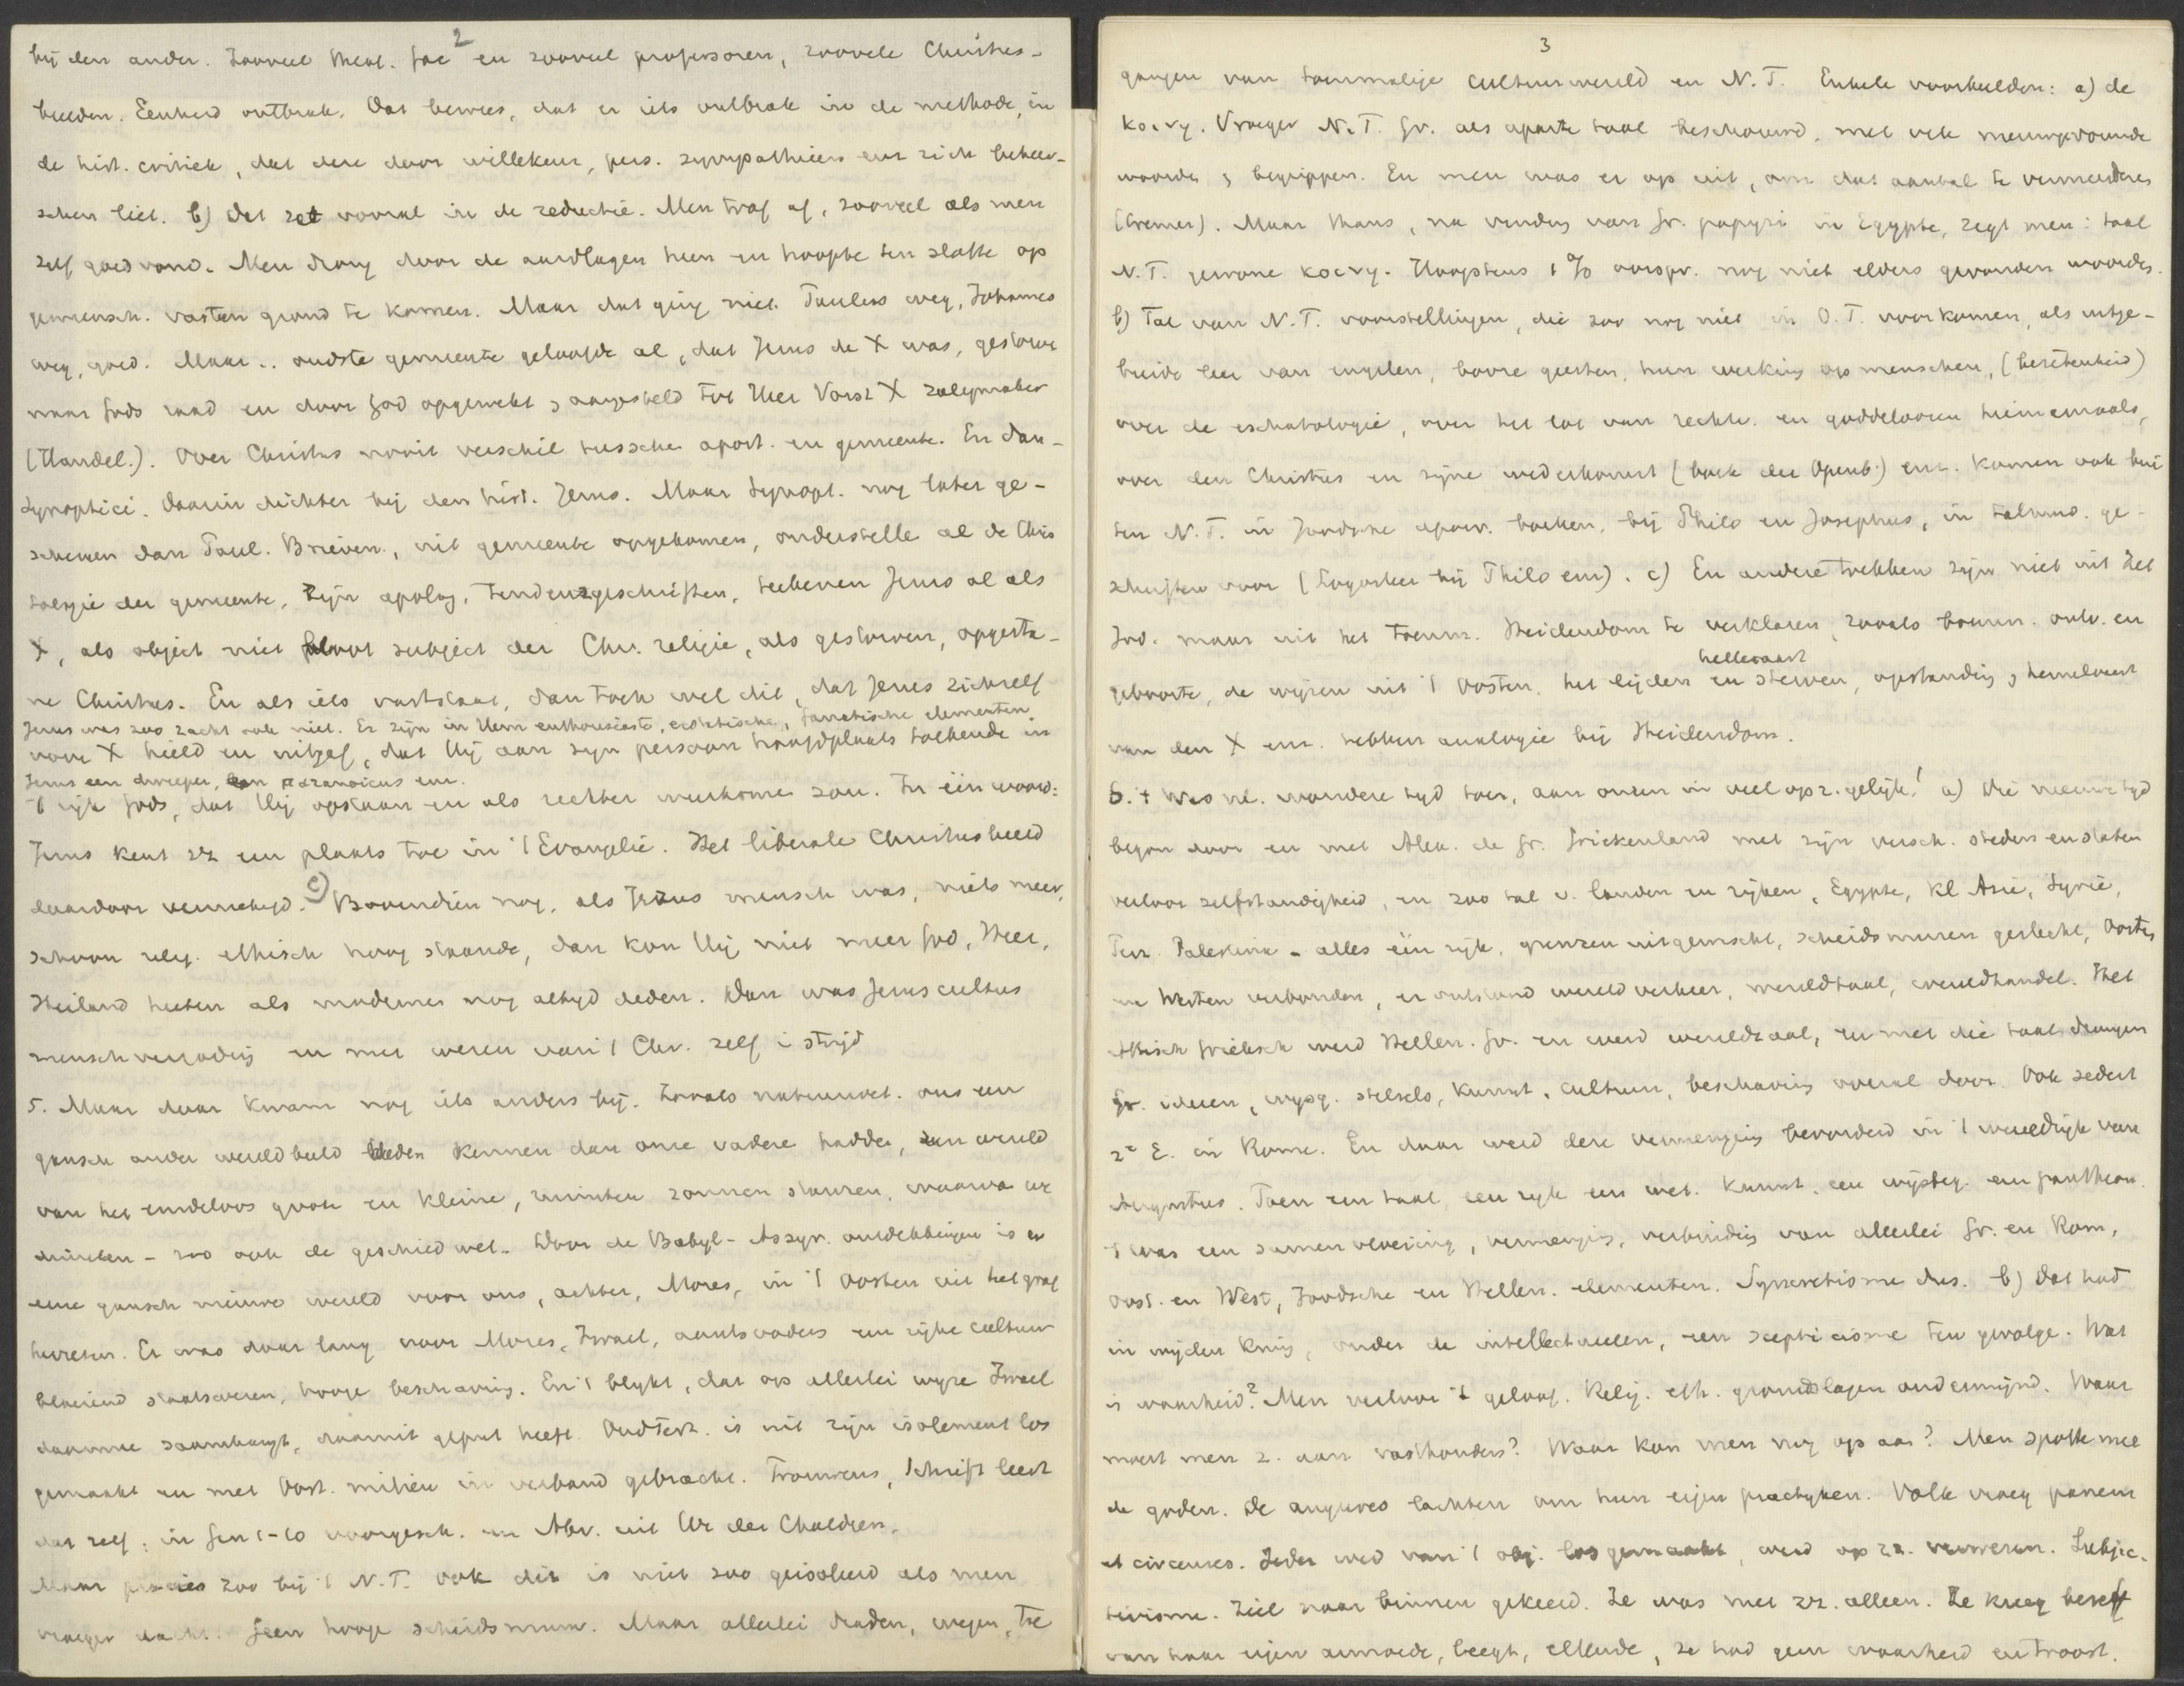 2
bij den ander. Zooveel theol. fac en zooveel professoren, zoovele Christus-
beelden. Eenheid ontbrak. Dat bewees, dat er iets ontbrak in de methode, in
de hist. critiek, dat deze door willekeur, pers. sympathieen enz zich beheer-
schen liet. b) Dat zat vooral in de reductie. Men trof af, zooveel als men
zelf goed vond. Men drong door de aardlagen heen en hoopte ten slotte op
gemeensch. vasten grond te komen. Maar dat ging niet. Paulus weg, Johannes
weg, goed. Maar .. oudste gemeente geloofde al, dat Jezus de X was, gestorven
naar Gods raad en door God opgewekt & aangesteld tot Heer Vorst X Zaligmaker
(Handel.). Over Christus nooit verschil tusschen apost. en gemeente. En dan -
Synoptici. Daarin dichter bij den hist. Jezus. Maar Synopt. nog later ge-
schreven dan Paul. Brieven, uit gemeente opgekomen, onderstelle al de Chris
tologie der gemeente, zijn apolog. tendenzgeschriften, teekenen Jezus al als
X, als object niet bloot subject der Chr. religie, als gestorven, opgesta-
ne Christus. En als iets vaststaat, dan toch wel dit, dat Jezus zichzelf
Jezus was zoo zacht ook niet. Er zijn in Hem enthousiaste, ecstatische, fanatische elementen.
voor X hield en uitgaf, dat Hij aan zijn persoon hoofdplaats toekende in
Jezus een dweeper, een paranoicus enz.
't rijk Gods, dat Hij opstaan en als rechter weerkomen zou. In één woord:
Jezus kent zz een plaats toe in 't Evangelie. Het liberale Christusbeeld
daardoor vernietigd. c) Bovendien nog, als Jezus mensch was, niets meer,
schoon relig. ethisch hoog staande, dan kon Hij niet meer God, Heer,
Heiland heeten als modernen nog altijd deden. Dan was Jezuscultus
menschvergoding en met wezen van 't Chr. zelf i strijd
5. Maar daar kwam nog iets anders bij. Zooals natuurwet. ons een
gansch ander wereldbeeld heden kennen dan onze vaderen hadden, een wereld
van het eindeloos groote en kleine, zonnen sterren, waarvan we
duizelen - zoo ook de geschied wet. Door de Babyl-Assyr. ontdekkingen is er
eene gansch nieuwe wereld voor ons, achter, Mozes, in 't Oosten uit het graf
herrezen. Er was daar lang voor Mozes, Israel, aartsvaders een rijke cultuur
bloeiend staatswezen, hooge beschaving. En 't blijkt, dat op allerlei wijze Israel
daarmee saamhangt, daaruit geput heeft. OudTest. is uit zijn isolement los
gemaakt en met Oost. milieu in verband gebracht. Trouwens, Schrift leert
dat zelf: in Gen 1-10 voorgesch. en Abr. uit Ur der Chaldeen.
Maar precies zoo bij 't N.T. Ook dit is niet zoo geisoleerd als men
vroeger dacht. Geen hooge scheidsmuur. Maar allerlei draden, wegen, toe
3
gangen van toenmalige cultuurwereld en N.T. Enkele voorbeelden: a) de
κοινη. Vroeger N.T. Gr. als aparte taal beschouwd, met vele nieuwgevormde
woorden & begrippen. En men was er op uit, om dat aantal te vermeerderen
(Cremer). Maar thans, na vinding van Gr. papyri in Egypte, zegt men: taal
N.T. gewone κοινη. Hoogstens 1% oorspr. nog niet elders gevonden woorden.
b) Tal van N.T. voorstellingen, die zoo nog niet in O.T. voorkomen, als uitge-
breide leer van engelen, booze geesten, hun werking op menschen, (bezetenheid)
over de eschatologie, over het lot van rechtv. en goddeloozen hiernamaals,
over den Christus en zijne wederkomst (boek der Openb.) enz. komen ook bui
ten N.T. in Joodsche apocr. boeken, bij Philo en Josephus, in talmud. ge-
schriften voor (Logosleer bij Philo enz). c) En andere trekken zijn niet uit het
Jod. maar uit het toenm. Heidendom te verklaren, zooals bovenn. ontv. en
hellevaart
geboorte, de wijzen uit 't Oosten, het lijden en sterven, opstanding & hemelvaart
van den X enz. hebben analogie bij Heidendom.
6. 't Was nl. wondere tijd toen, aan onzen in veel opz. gelijk! a) Die nieuwe tijd
begon door en met Alex. de Gr. Griekenland met zijn versch. steden en staten
verloor zelfstandigheid, en zoo tal v. landen en rijken, Egypte, Kl Azie, Syrie,
Perz. Palestina - alles één rijk, grenzen uitgewischt, scheidsmuren geslecht, Oosten
en Westen verbonden, er ontstond wereldverkeer, wereldtaal, wereldhandel. Het
Attisch Grieksch werd Hellen. Gr. en werd wereldtaal, en met die taal drongen
Gr. ideeen, wijsg. stelsels, kunst, cultuur, beschaving overal door. Ook sedert
2e E. in Rome. En daar werd deze vermenging bevorderd in 't wereldrijk van
Augustus. Toen een taal, een rijk een wet. Kunst, een wijsbeg. een pantheon.
't Was een samenvloeiing, vermenging, verbinding van allerlei Gr. en Rom,
Oost. en West, Joodsche en Hellen. elementen. Syncretisme dus. b) Dat had
in wijden kring, onder de intellectueelen, een scepticisme ten gevolge. Wat
is waarheid? Men verloor 't geloof. Relig. eth. grondslagen ondermijnd. Waar
moest men z. aan vasthouden? Waar kon men nog op aan? Men spotte mee
de goden. De augures lachten om hun eigen practijken. Volk vroeg panem
et circenses. Ieder werd van 't obj. losgemaakt, werd op zz. verwezen. Subjec-
tivisme. Ziel naar binnen gekeerd. Ze was met zz. alleen. Ze kreeg besef
van haar eigen armoede, leegh, ellende, ze had geen waarheid en troost.